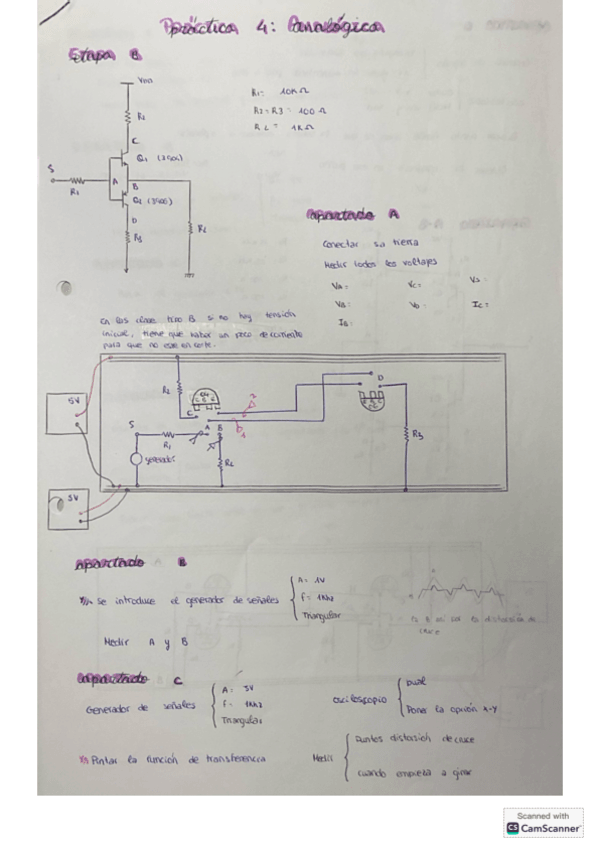 Práctica 4: Panalógica
Etapa B
VDD
R2
R1= 10KΩ
R2=R3= 100 Ω
RL= 1KΩ
C
Q1 (3904)
S
R1
A
B
D
R3
RL
Apartado A
Conectar S a tierra
Medir todos los voltajes
VA= VC= VS=
VB= VD= IC=
IB=
En los clase tipo B si no hay tensión
inicial, tiene que haber un poco de corriente
para que no este en corte.
5V
R2
C
D
S
R1
A B
generador
RL
R3
5V
Apartado B
Se introduce el generador de señales
A= 1V
f= 1KHz
Triangular
Medir A y B
Apartado C
Generador de señales
A= 5V
f= 1KHz
Triangular
osciloscopio
Dual
Poner la opción X-Y
Pintar la función de transferencia
Medir
Puntos distorsión de cruce
cuando empieza a girar
Scanned with
CS CamScanner